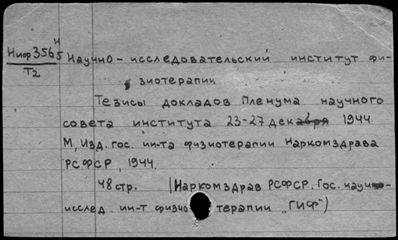 Ниф 3565 ч
Т2
Научно-исследовательский институт фи-
зиотерапии
Тезисы докладов Пленума научного
совета института 23-27 декабря 1944
М, Изд. гос. ин-та физиотерапии Наркомздрава
РСФСР, 1944.
48 стр. (Наркомздрав РСФСР. Гос. научно-
исслед. ин-т физио терапии "ГИФ")